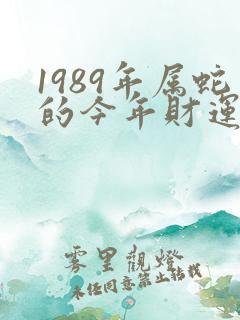 1989年属蛇
的今年財運
雾里觀燈
未经同意禁止转载